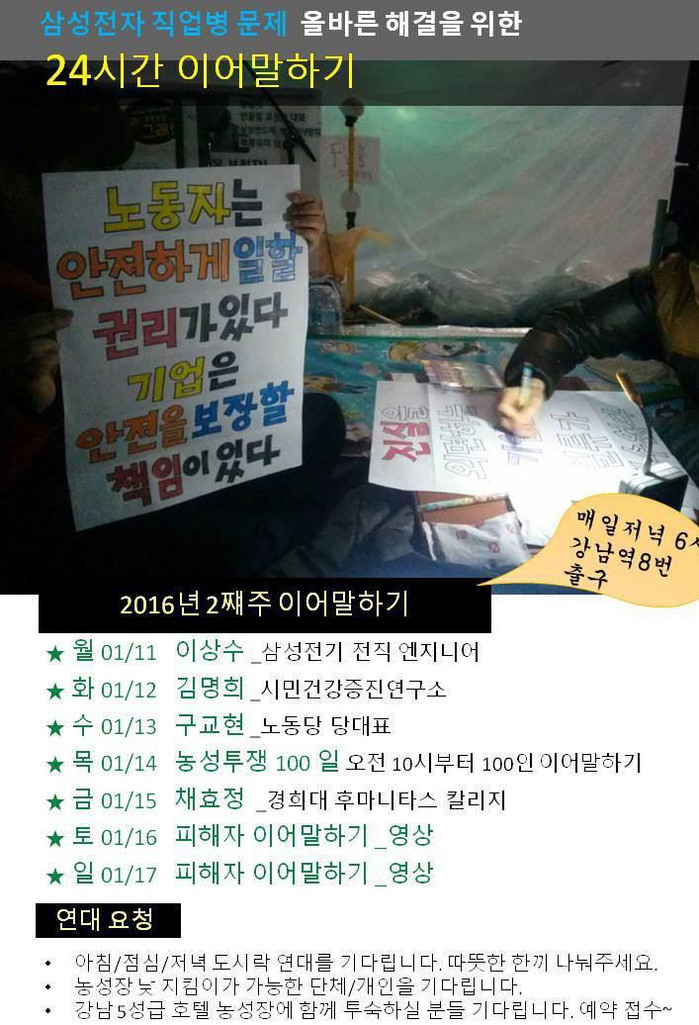 삼성전자 직업병 문제 올바른 해결을 위한
24시간 이어말하기
노동자는
안전하게 일할
권리가 있다
기업은
안전을 보장할
책임이 있다
진실을
매일저녁 6시
강남역8번
출구
2016년 2째주 이어말하기
★ 월 01/11 이상수 _삼성전기 전직 엔지니어
★ 화 01/12 김명희 _시민건강증진연구소
★ 수 01/13 구교현 _노동당 당대표
★ 목 01/14 농성투쟁 100 일 오전 10시부터 100인 이어말하기
★ 금 01/15 채효정 _경희대 후마니타스 칼리지
★ 토 01/16 피해자 이어말하기 _영상
★ 일 01/17 피해자 이어말하기 _영상
연대 요청
• 아침/점심/저녁 도시락 연대를 기다립니다. 따뜻한 한끼 나눠주세요.
• 농성장 낮 지킴이가 가능한 단체/개인을 기다립니다.
• 강남 5성급 호텔 농성장에 함께 투숙하실 분들 기다립니다. 예약 접수~